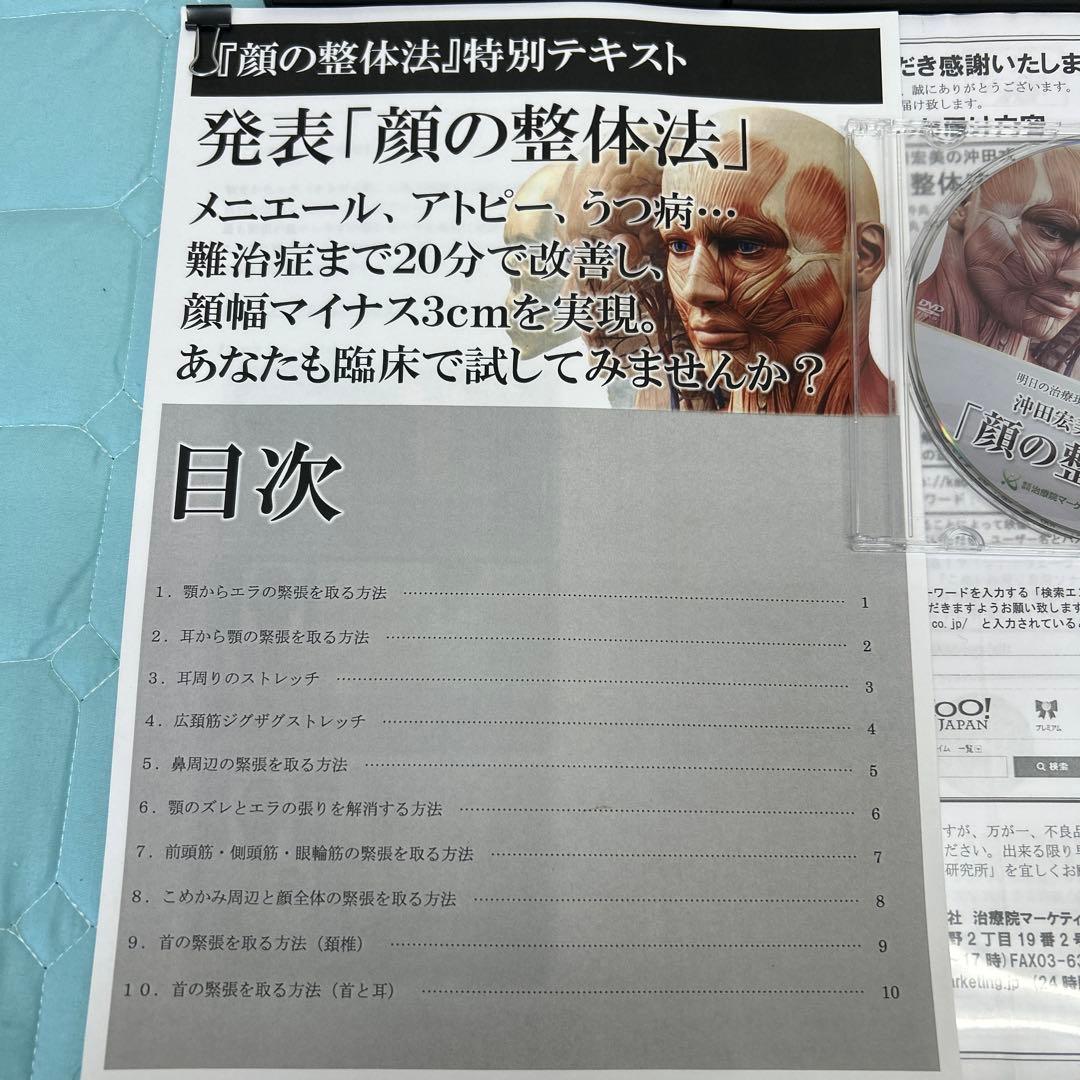 『顔の整体法』特別テキスト
発表「顔の整体法」
メニエール、アトピー、うつ病…
難治症まで20分で改善し、
顔幅マイナス3cmを実現。
あなたも臨床で試してみませんか？
目次
１．顎からエラの緊張を取る方法 1
２．耳から顎の緊張を取る方法 2
３．耳周りのストレッチ 3
４．広頚筋ジグザグストレッチ 4
５．鼻周辺の緊張を取る方法 5
６．顎のズレとエラの張りを解消する方法 6
７．前頭筋・側頭筋・眼輪筋の緊張を取る方法 7
８．こめかみ周辺と顔全体の緊張を取る方法 8
９．首の緊張を取る方法（頚椎） 9
１０．首の緊張を取る方法（首と耳） 10
だき感謝いたしま
誠にありがとうございます。
届け致します。
宏美の沖田
整体
DVD
明日の治療
沖田宏美
「顔の整
治療院マーケ
ワード
ーワードを入力する「検索エン
だきますようお願い致します
co.jp/ と入力されていると
OO!
JAPAN
プレミアム
一覧
検索
すが、万が一、不良品
ださい。出来る限り
研究所」を宜しくお願
社 治療院マーケティ
野２丁目19番２号
～17時)FAX03-63
arketing.jp (24時